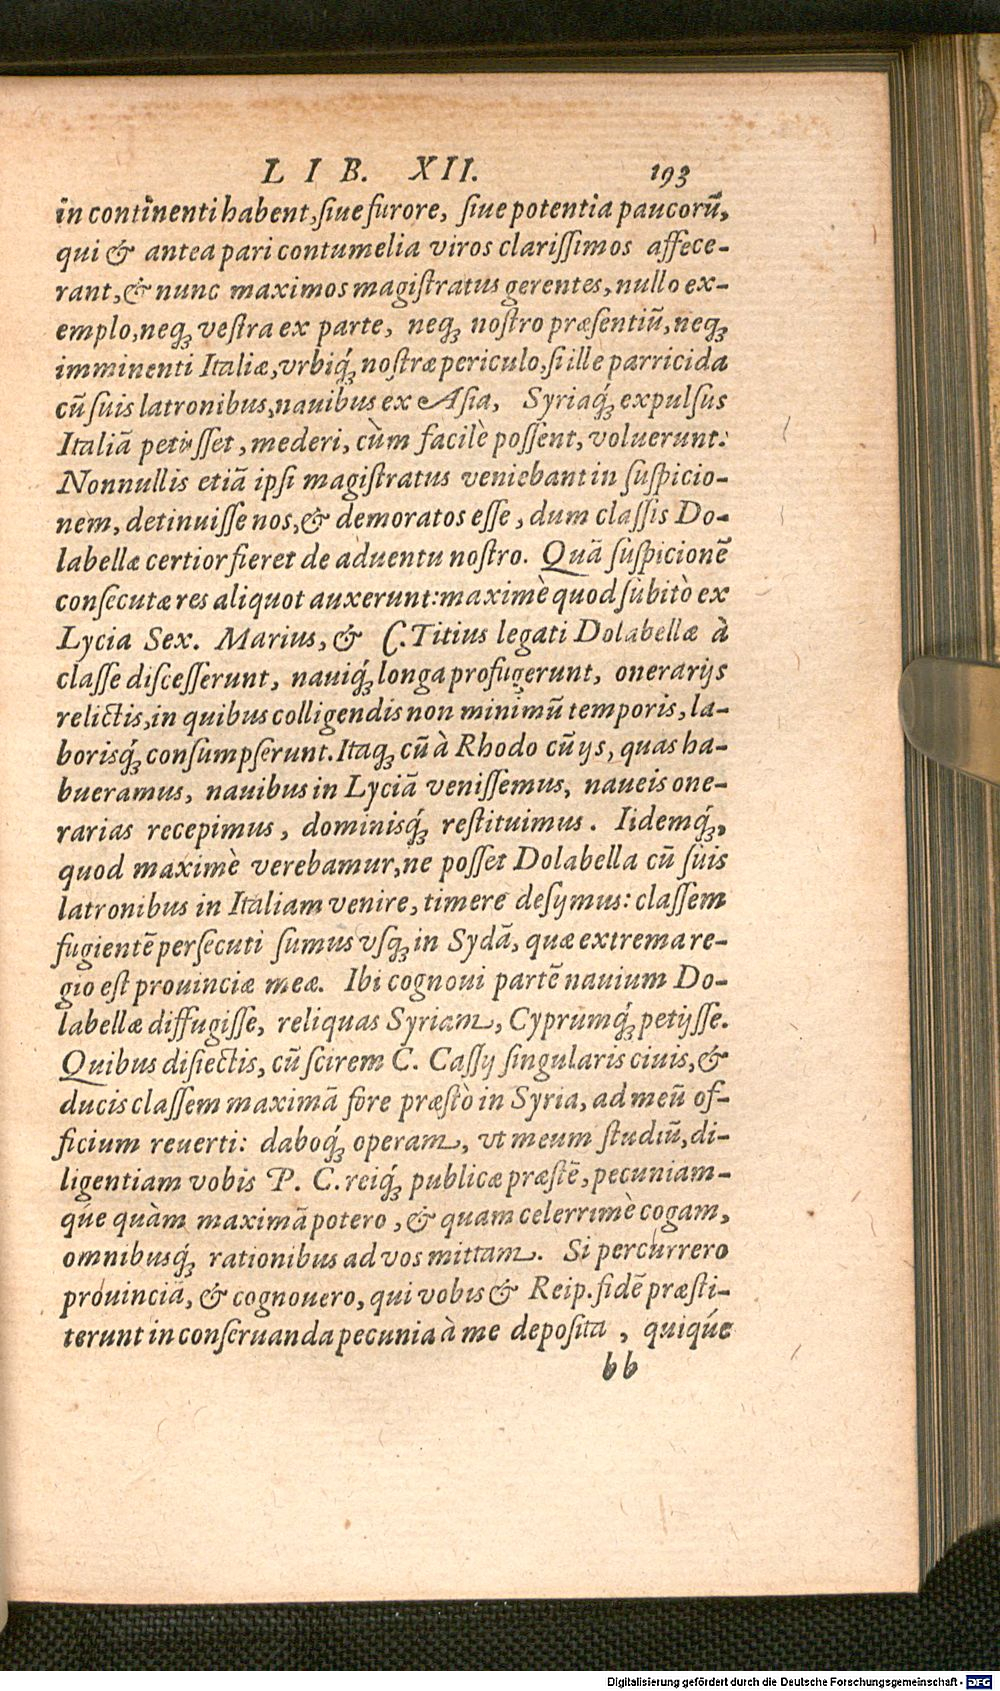 LIB. XII. 193
in continenti habent, ſiue furore, ſiue potentia paucorũ,
qui & antea pari contumelia viros clariſſimos affece-
rant, & nunc maximos magiſtratus gerentes, nullo ex-
emplo, neq; veſtra ex parte, neq; noſtro præſentiũ, neq;
imminenti Italiæ, vrbiq́; noſtræ periculo, ſi ille parricida
cũ ſuis latronibus, nauibus ex Aſia, Syriaq́; expulſus
Italiã petijſſet, mederi, cùm facilè poſſent, voluerunt:
Nonnullis etiã ipſi magiſtratus veniebant in ſuſpicio-
nem, detinuiſſe nos, & demoratos eſſe, dum claſſis Do-
labellæ certior fieret de aduentu noſtro. Quã ſuſpicionẽ
conſecutæ res aliquot auxerunt: maximè quod ſubitò ex
Lycia Sex. Marius, & C. Titius legati Dolabellæ à
claſſe diſceſſerunt, nauiq́; longa profugerunt, onerarijs
relictis, in quibus colligendis non minimũ temporis, la-
borisq́; conſumpſerunt. Itaq; cũ à Rhodo cũ ijs, quas ha-
bueramus, nauibus in Lyciã veniſſemus, naueis one-
rarias recepimus, dominisq́; reſtituimus. Iidemq́;,
quod maximè verebamur, ne poſſet Dolabella cũ ſuis
latronibus in Italiam venire, timere deſijmus: claſſem
fugientẽ perſecuti ſumus vſq; in Sydã, quæ extrema re-
gio eſt prouinciæ meæ. Ibi cognoui partẽ nauium Do-
labellæ diffugiſſe, reliquas Syriam, Cyprumq́; petijſſe.
Quibus diſiectis, cũ ſcirem C. Caſſij ſingularis ciuis, &
ducis claſſem maximã fore præſtò in Syria, ad meũ of-
ficium reuerti: daboq́; operam, vt meum ſtudiũ, di-
ligentiam vobis P. C. reiq́; publicæ præſtẽ, pecuniam-
que quàm maximã potero, & quam celerrimè cogam,
omnibusq́; rationibus ad vos mittam. Si percurrero
prouinciã, & cognouero, qui vobis & Reip. fidẽ præſti-
terunt in conſeruanda pecunia à me depoſita, quiq́ue
bb
Digitalisierung gefördert durch die Deutsche Forschungsgemeinschaft - DFG